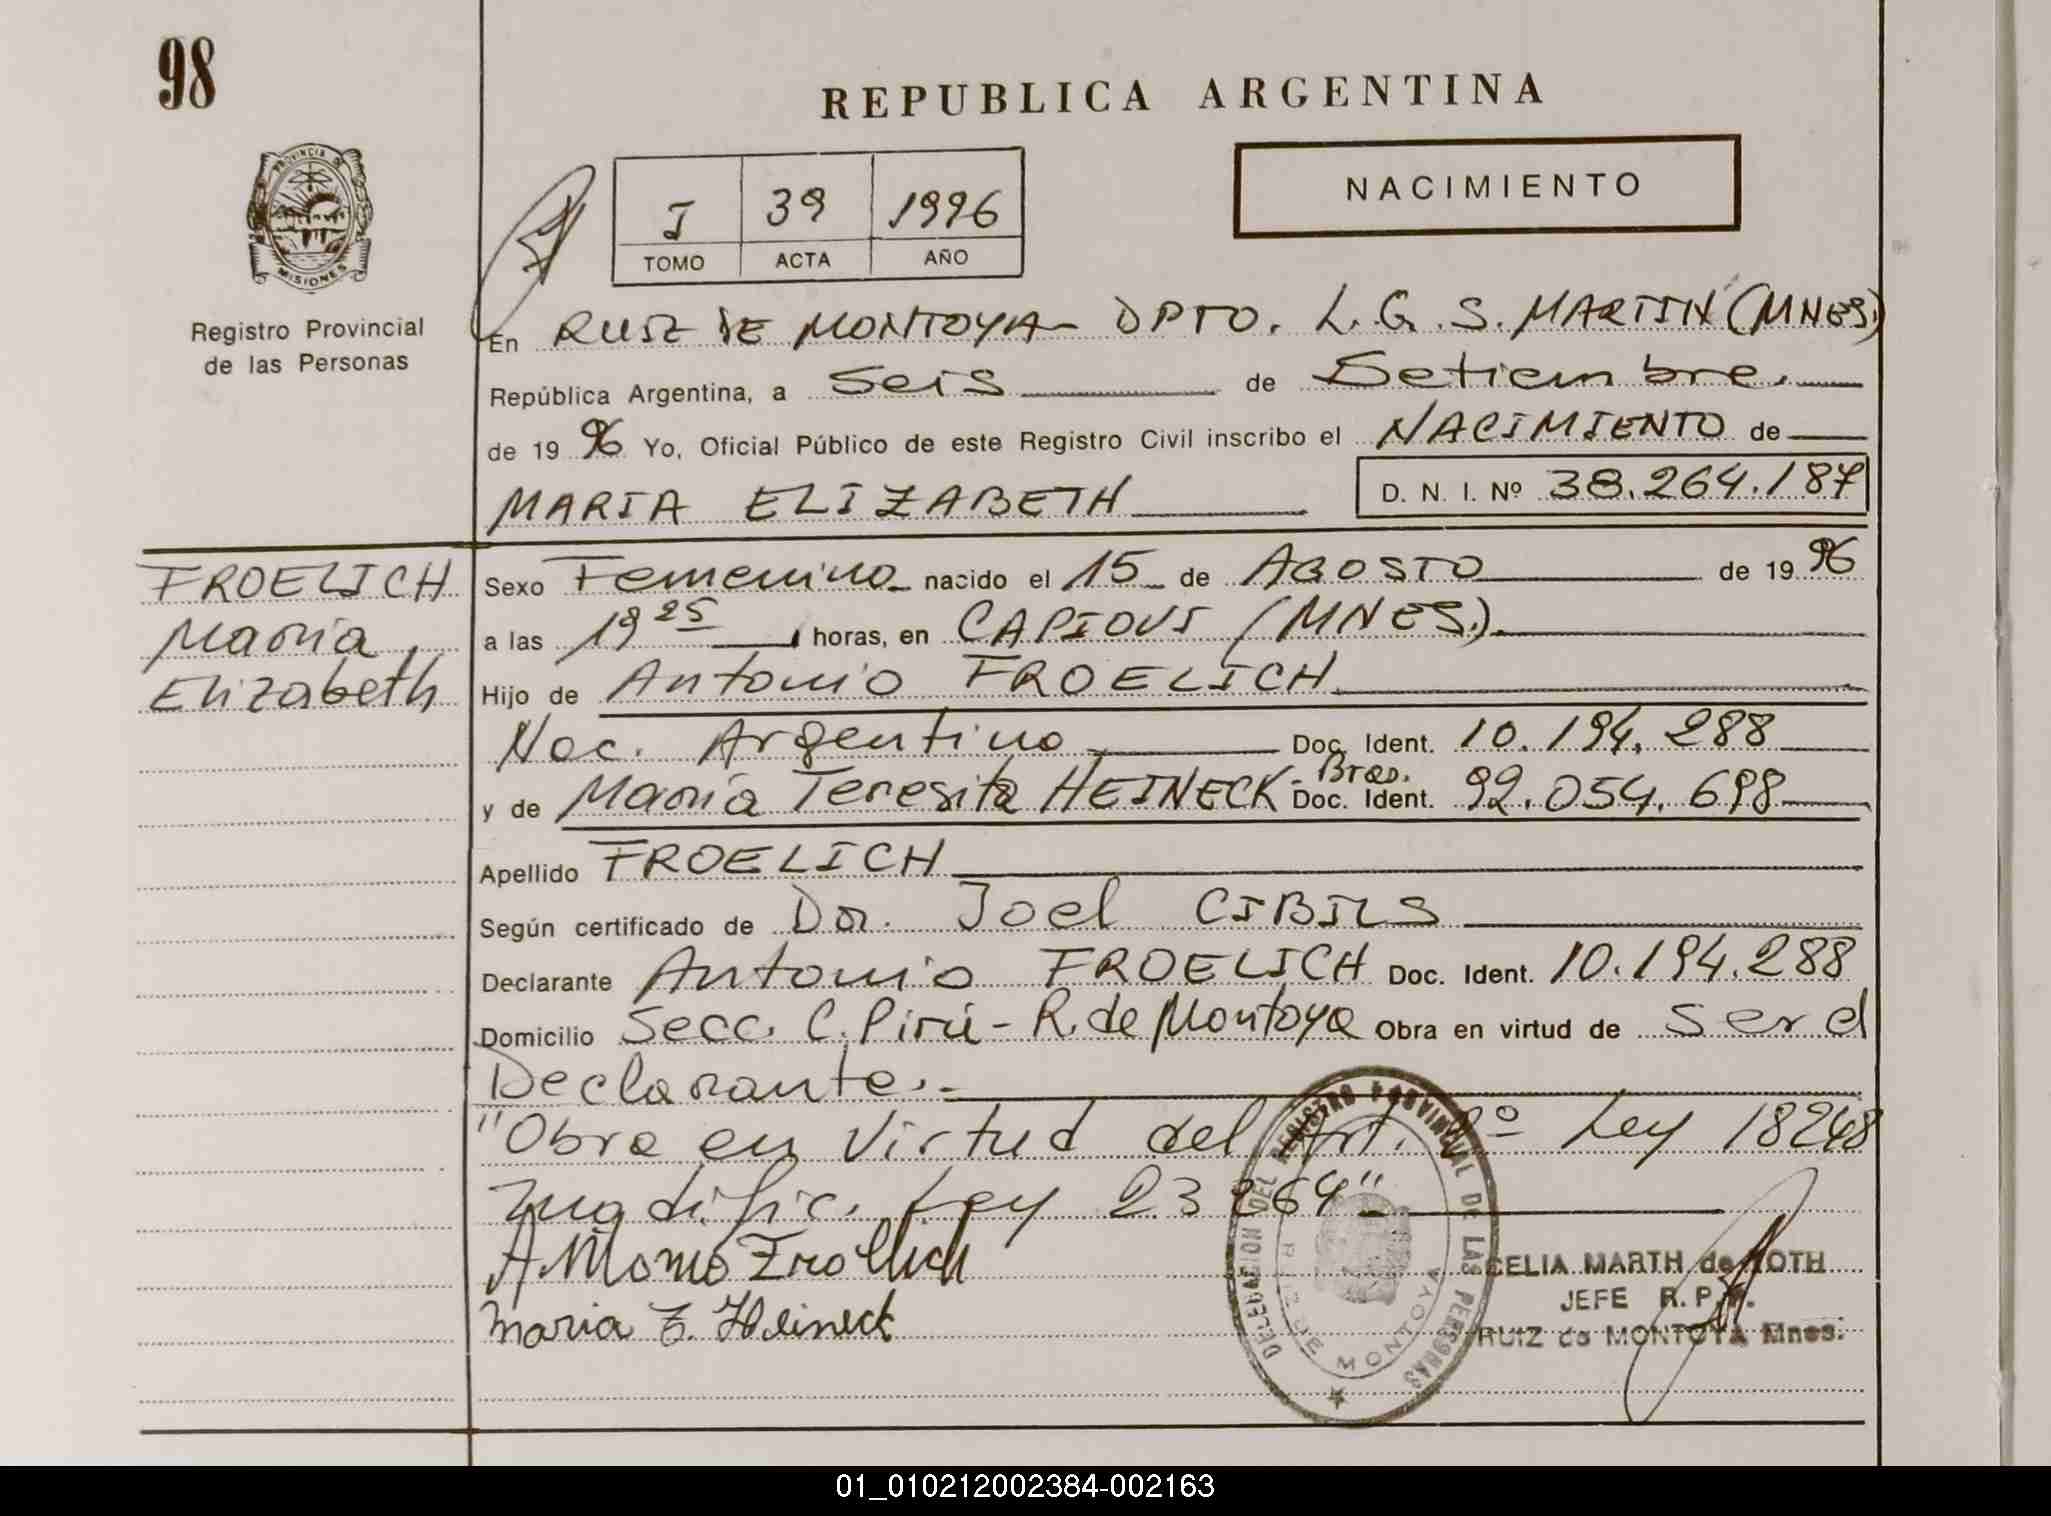 98
REPUBLICA ARGENTINA
NACIMIENTO
I 39 1996
TOMO ACTA AÑO
PROVINCIA DE
MISIONES
Registro Provincial
de las Personas
En RUIZ DE MONTOYA - DPTO. L.G.S. MARTIN (MNES.)
República Argentina, a Seis de Setiembre.
de 19 96 Yo, Oficial Público de este Registro Civil inscribo el NACIMIENTO de
MARIA ELIZABETH D. N. I. Nº 38.264.187
FROELICH
Maria
Elizabeth
Sexo Femenino nacido el 15 de AGOSTO de 19 96
a las 19 25 horas, en CAPIOVI (MNES.)
Hijo de Antonio FROELICH
Nac. Argentino Doc. Ident. 10.194.288
y de Maria Teresita HEINECK - Bras. Doc. Ident. 92.054.698
Apellido FROELICH
Según certificado de Dr. Joel CIBILS
Declarante Antonio FROELICH Doc. Ident. 10.194.288
Domicilio Secc. C. Pirú - R. de Montoya Obra en virtud de ser el
Declarante.-
"Obra en virtud del Art. 2º Ley 18248
modific. Ley 23264"
Antonio Froelich
Maria T. Heineck
DELEGACION DEL REGISTRO PROVINCIAL DE LAS PERSONAS
RUIZ DE MONTOYA
CELIA MARTH de ROTH
JEFE R.P.P.
RUIZ de MONTOYA Mnes.
01_010212002384-002163